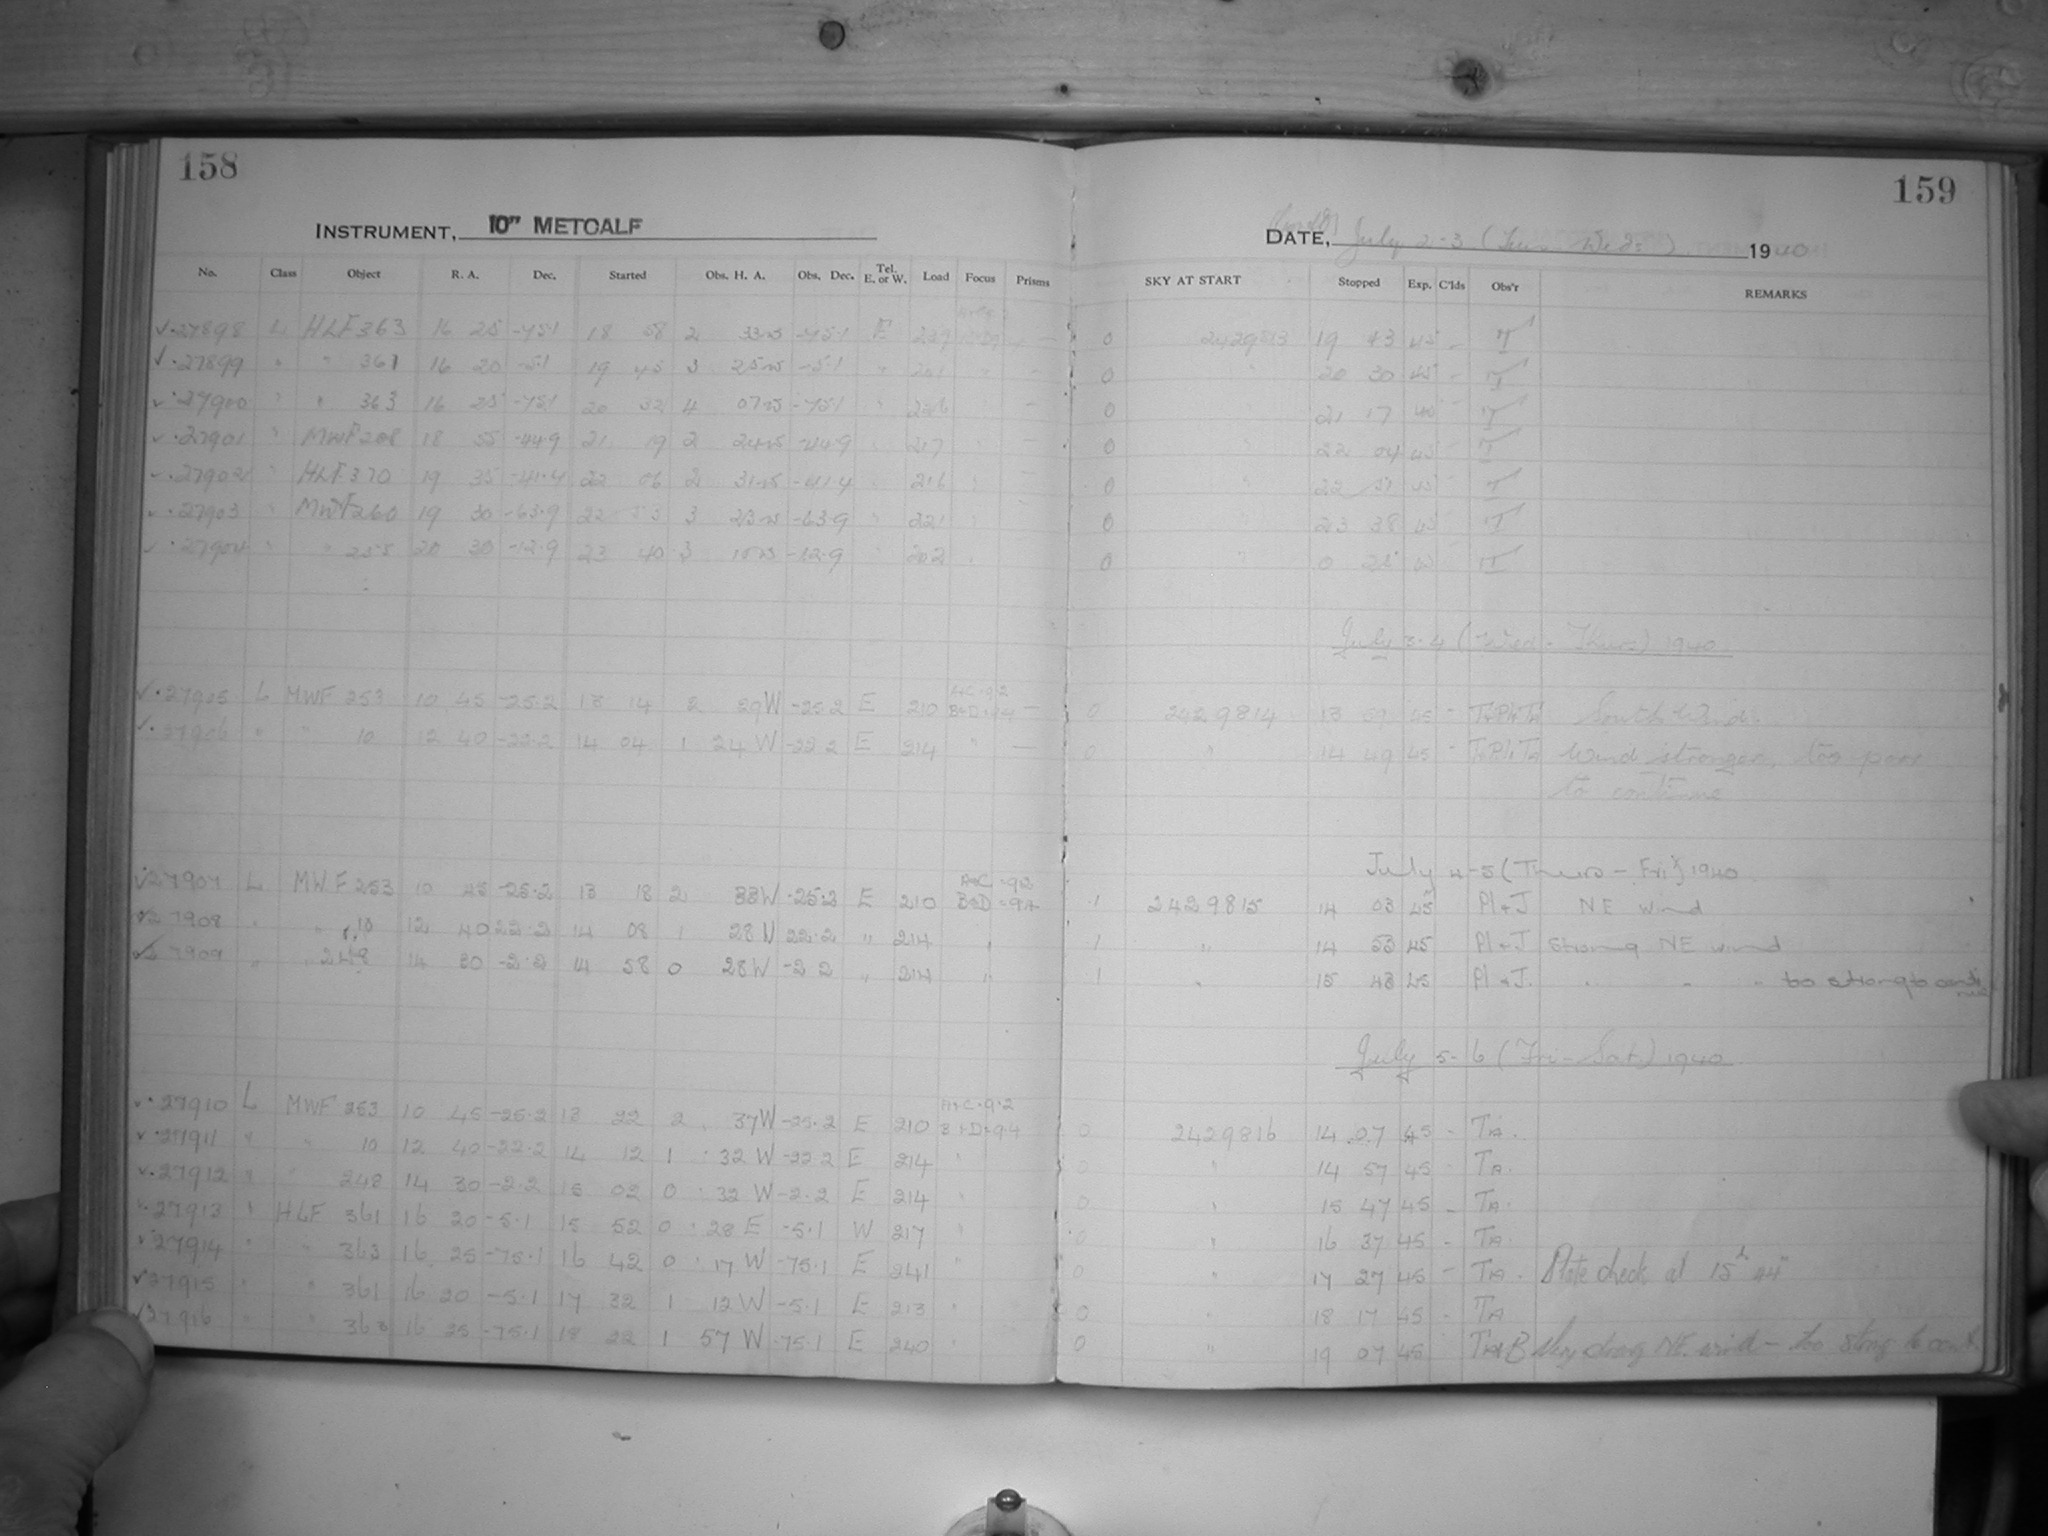 158
159
INSTRUMENT, 10" METCALF
DATE, July 2-3 (Tues - Weds) 1940
No. Class Object R. A. Dec. Started Obs. H. A. Obs. Dec. Tel. E. or W. Load Focus Prisms SKY AT START Stopped Exp. C'lds Obs'r REMARKS
✓·27898 L HLF 363 16 25 -75·1 18 58 2 -75·1 E 0 2429813 19 43 45 - T
✓·27899 " " 361 16 20 -5·1 19 45 3 -5·1 " 0 " 20 30 45 - T
✓·27900 " " 363 16 25 -75·1 20 32 4 -75·1 " 0 " 21 17 - T
✓·27901 " MWF 208 18 55 -44·9 21 19 2 -44·9 " 217 0 " 22 04 45 - T
✓·27902 " HLF 370 19 35 -41·4 22 06 2 -41·4 " 216 0 " 22 51 45 - T
✓·27903 " MWF 260 19 30 -63·9 22 53 3 -63·9 " 221 0 " 23 38 45 T
✓·27904 " " 20 30 -12·9 23 40 3 -12·9 202 0 " 0 25 45 T
July 3-4 (Wed - Thurs) 1940
✓·27905 L MWF 253 10 45 -25·2 13 14 2 29 W -25·2 E 210 A+C·9·2 B+D·9·4 - 0 2429814 13 59 45 - South Wind.
✓·27906 " " 10 12 40 -22·2 14 04 1 24 W -22·2 E 214 " - 0 " 14 49 45 - Wind stronger, too poor
to continue
July 4-5 (Thurs - Fri) 1940
✓27907 L MWF 253 10 45 -25·2 13 18 2 33 W -25·2 E 210 A+C ·92 B+D ·94 1 2429815 14 03 45 Pl+J NE wind
✓27908 " " 10 12 40 22·2 14 08 1 28 W 22·2 " 214 " 1 " 14 53 45 Pl+J Strong NE wind
✓27909 " " 248 14 30 -2·2 14 58 0 28 W -2 2 " 214 " 1 " 15 43 45 Pl+J. " " " too strong to continue
July 5-6 (Fri - Sat) 1940
✓·27910 L MWF 253 10 45 -25·2 13 22 2 37 W -25·2 E 210 A+C·9·2 B+D·94 0 2429816 14 07 45 - TA.
✓·27911 " " 10 12 40 -22·2 14 12 1 32 W -22·2 E 214 " 0 " 14 57 45 - TA.
✓·27912 " " 248 14 30 -2·2 15 02 0 32 W -2·2 E 214 " 0 " 15 47 45 - TA.
✓·27913 " HLF 361 16 20 -5·1 15 52 0 28 E -5·1 W 217 " 0 " 16 37 45 - TA.
✓·27914 " " 363 16 25 -75·1 16 42 0 17 W -75·1 E 241 " 0 " 17 27 45 - TA. Plate check at 15h 44m
✓27915 " " 361 16 20 -5·1 17 32 1 12 W -5·1 E 213 " 0 " 18 17 45 - TA
✓27916 " " 363 16 25 -75·1 18 22 1 57 W -75·1 E 240 " 0 " 19 07 45 TA+B Very strong NE. wind - too strong to cont.